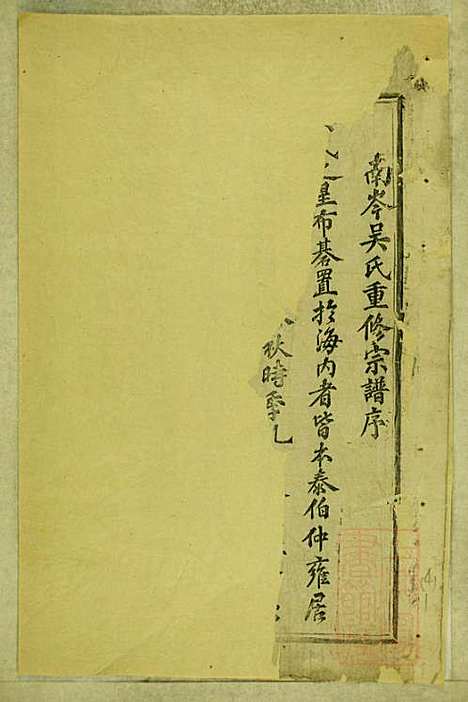 南岑吴氏重修宗譜序
之星布碁置於海内者皆本泰伯仲雍居
秋時季札